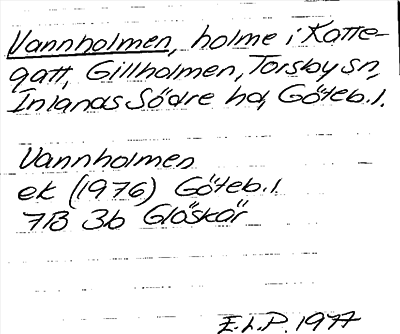 Vannholmen, holme i Katte-
gatt, Gillholmen, Torsby sn,
Inlands Södre hd, Göteb. l.
Vannholmen
ek (1976) Göteb. l.
7B 3b Glöskär
E.L.P. 1977